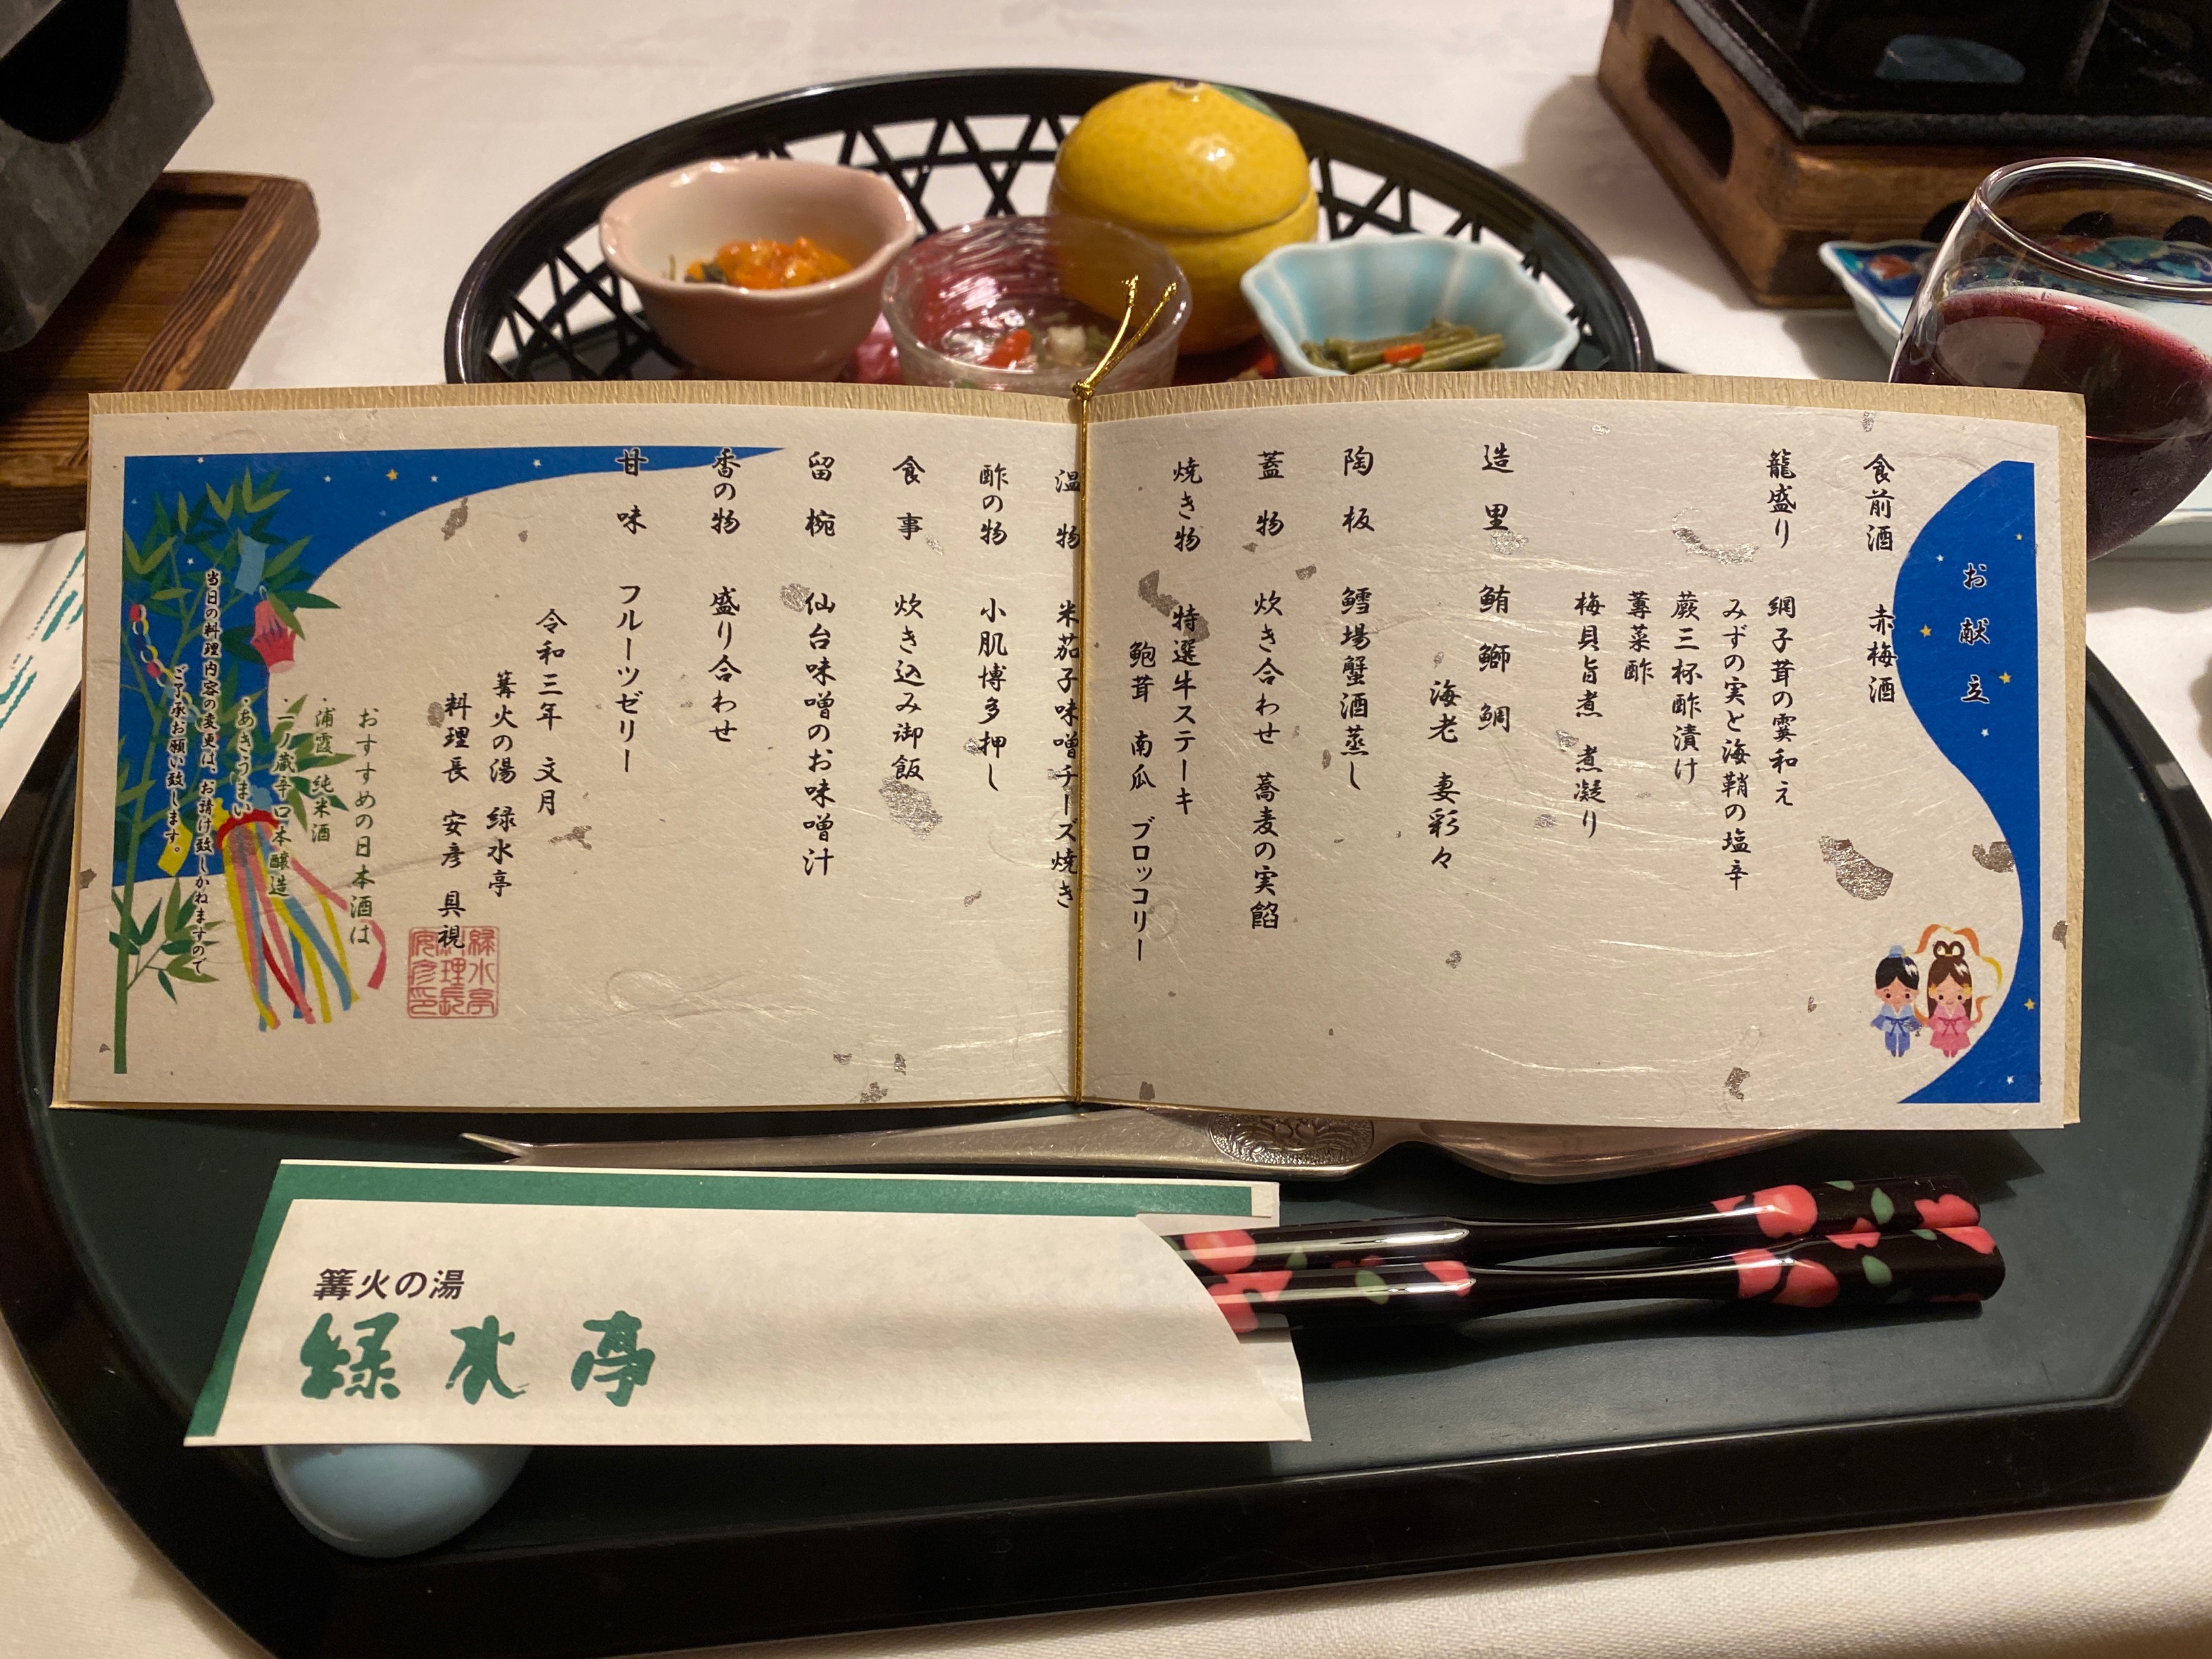 お献立
食前酒 赤梅酒
籠盛り 網子茸の霙和え
みずの実と海鞘の塩辛
蕨三杯酢漬け
蓴菜酢
梅貝旨煮 煮凝り
造里 鮪 鰤 鯛
海老 妻彩々
陶板 鱈場蟹酒蒸し
蓋物 炊き合わせ 蕎麦の実餡
焼き物 特選牛ステーキ
鮑茸 南瓜 ブロッコリー
温物 米茄子味噌チーズ焼き
酢の物 小肌博多押し
食事 炊き込み御飯
留椀 仙台味噌のお味噌汁
香の物 盛り合わせ
甘味 フルーツゼリー
令和三年 文月
篝火の湯 緑水亭
料理長 安彦 具視
緑水亭
料理長
安彦印
おすすめの日本酒は
・浦霞 純米酒
・一ノ蔵辛口本醸造
・あきうまい
当日の料理内容の変更は、お請け致しかねますので
ご了承お願い致します。
篝火の湯
緑水亭